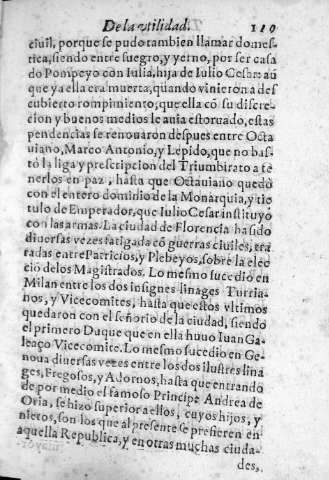 De la vtilidad. 119
ciuil, porque se pudo tambien llamar domes-
tica, siendo entre suegro, y yerno, por ser casa
do Pompeyo con Iulia, hija de Iulio Cesar: aũ
que ya ella era muerta, quando vinieron a des
cubierto rompimiento; que ella cõ su discre-
cion y buenos medios le auia estoruado, estas
pendencias se renouaron despues entre Octa
uiano, Marco Antonio, y Lepido, que no bas-
tó la liga y prescripcion del Triumbirato a te
nerlos en paz, hasta que Octauiano quedó
con el entero dominio de la Monarquia, y ti
tulo de Emperador, que Iulio Cesar instituyó
con las armas. La ciudad de Florencia ha sido
diuersas vezes fatigada cõ guerras ciuiles, tra
uadas entre Patricios, y Plebeyos, sobre la elec
ció delos Magistrados. Lo mesmo sucedio en
Milan entre los dos insignes linages Turria-
nos, y Vicecomites, hasta que estos vltimos
quedaron con el señorio de la ciudad, siendo
el primero Duque que en ella huuo Iuan Ga-
leaço Vicecomite. Lo mesmo sucedio en Ge-
noua diuersas vezes entre los dos ilustres lina
ges, Fregosos, y Adornos, hasta que entrando
de por medio el famoso Principe Andrea de
Oria, se hizo superior a ellos, cuyos hijos, y
nietos, son los que al presente se prefieren en
aquella Republica, y en otras muchas ciuda-
des,